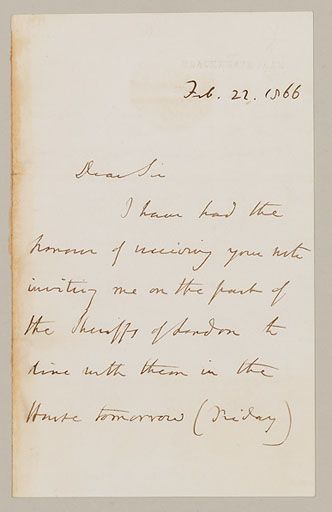 Feb. 22. 1866
Dear Sir
I have had the
honour of receiving your note
inviting me on the part of
the Sheriffs of London to
dine with them in the
House tomorrow (Friday)